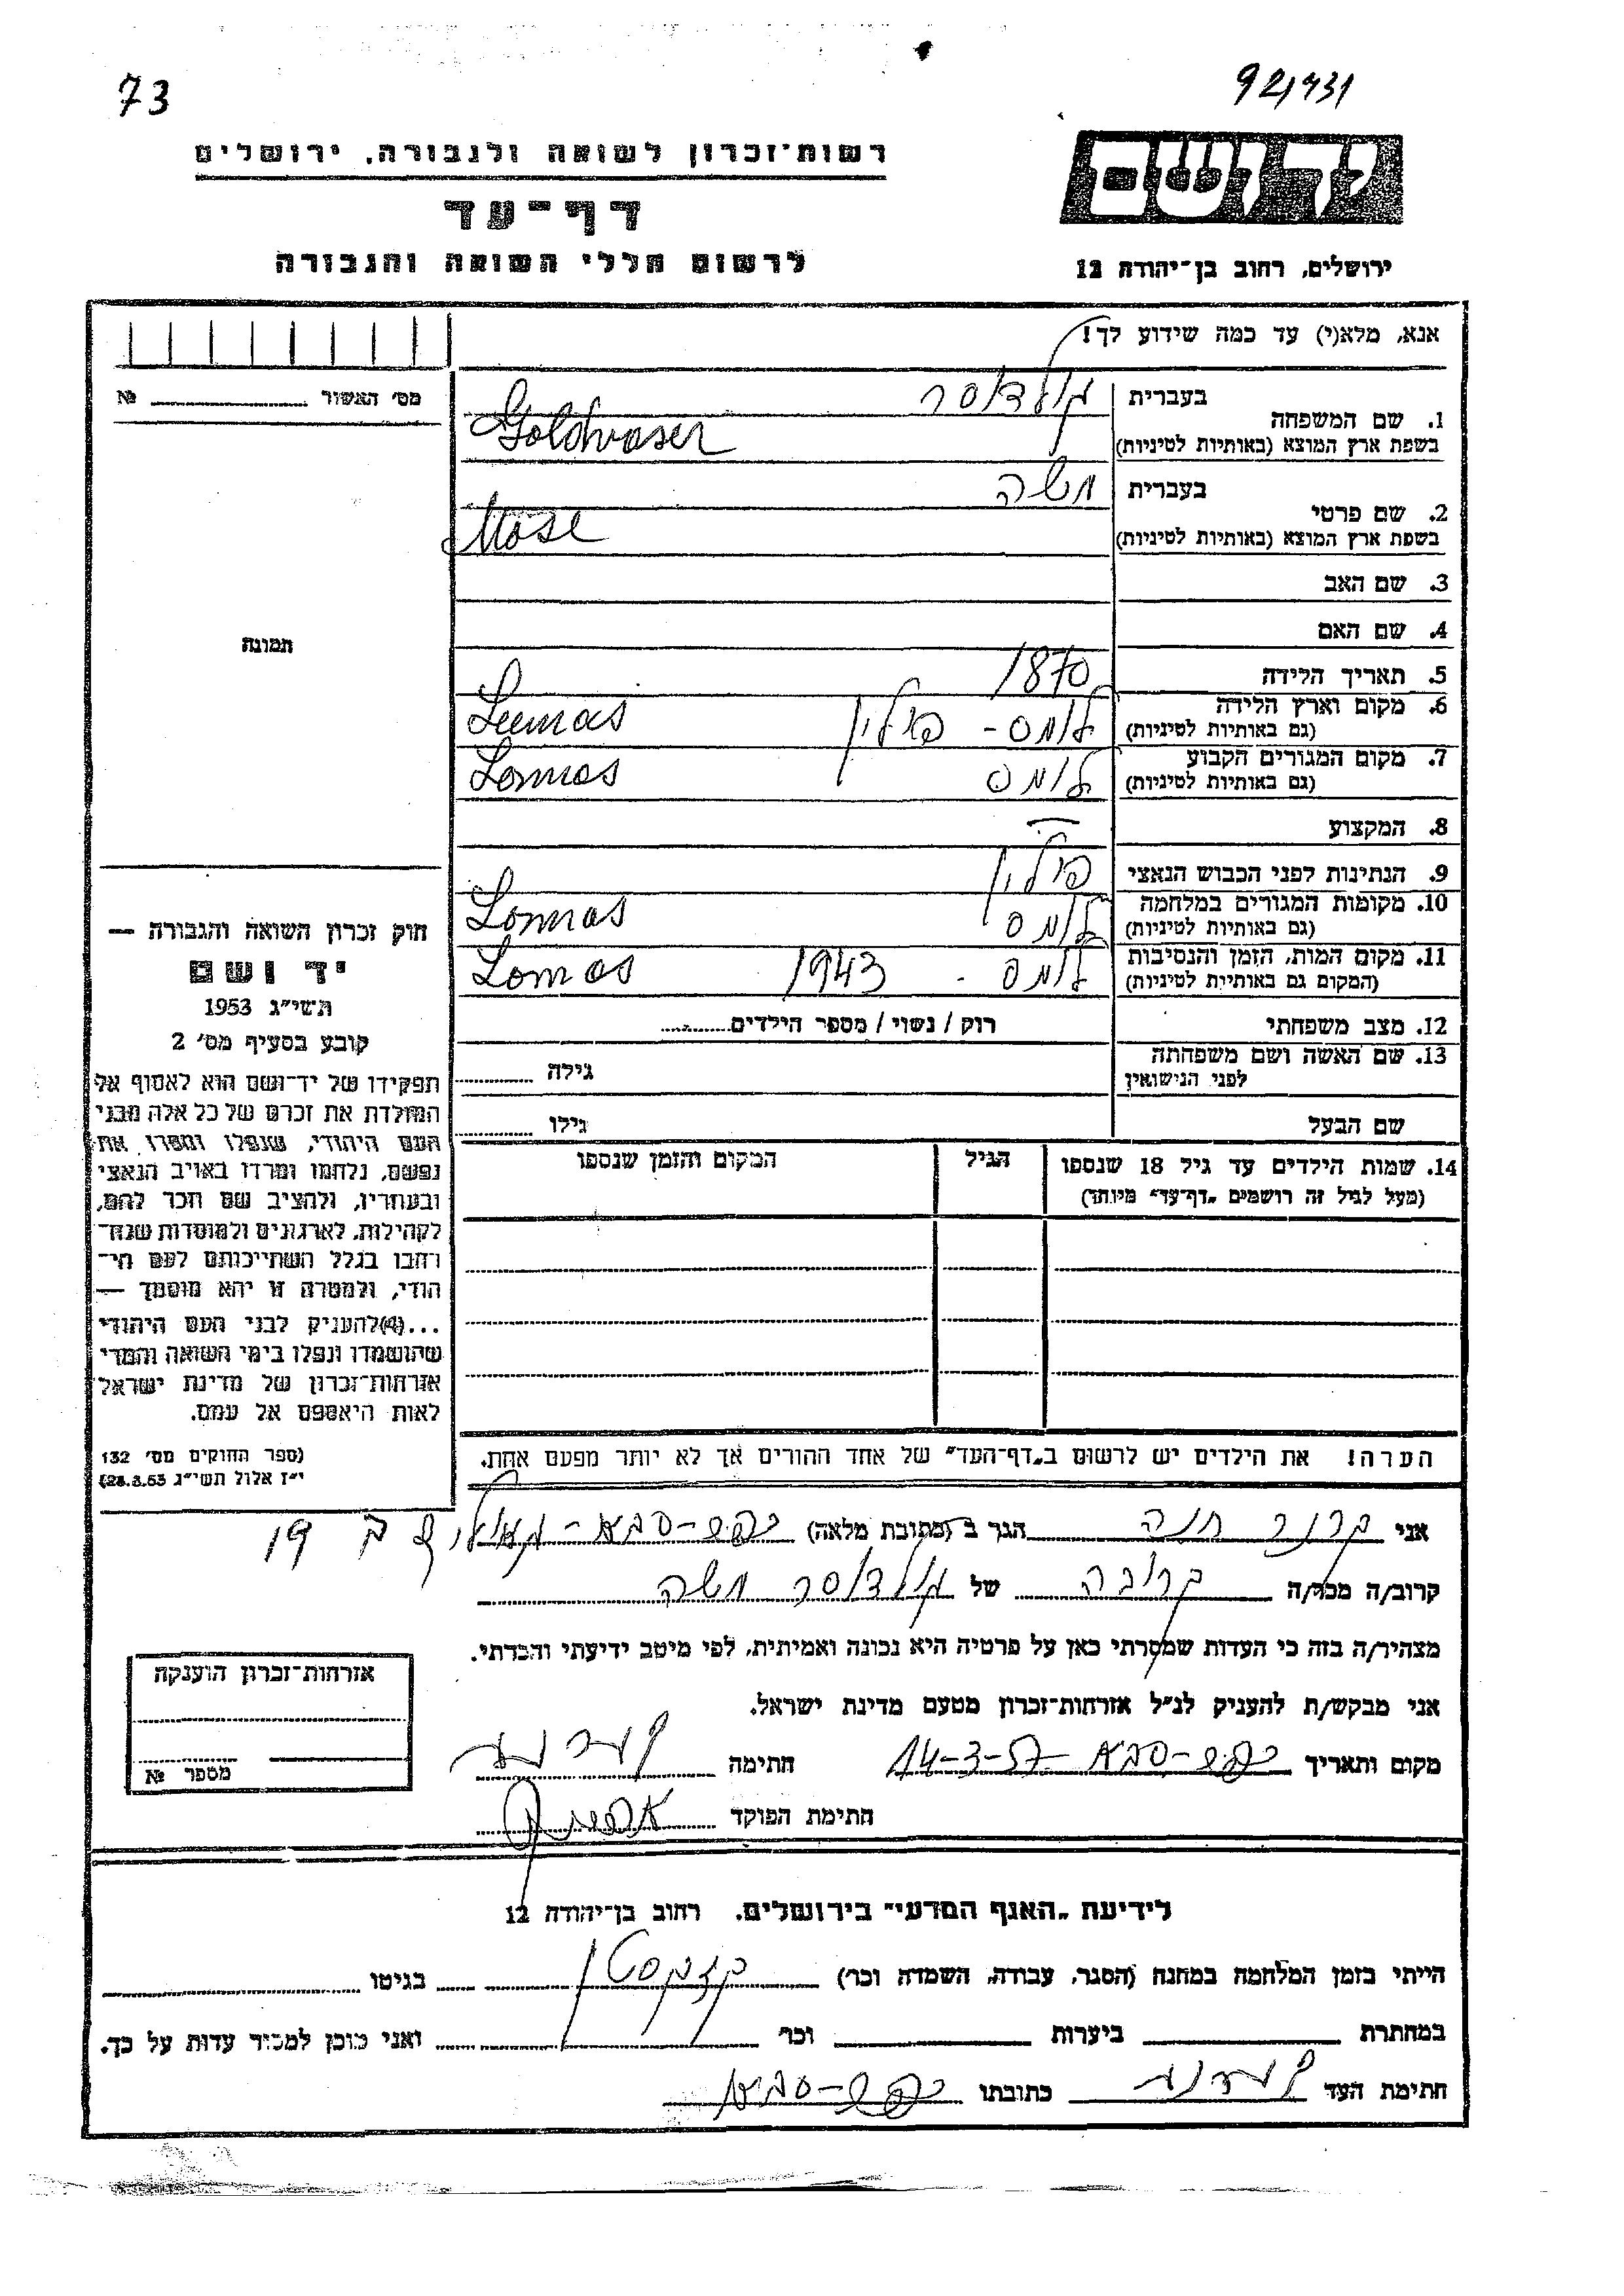 73
רשות־זכרון לשואה ולגבורה, ירושלים
דף־עד
לרשום חללי השואה והגבורה
יד ושם
ירושלים, רחוב בן־יהודה 12
אנא, מלא(י) עד כמה שידוע לך!
מס׳ האשור № ........
1. שם המשפחה
בעברית גולדוסר
בשפת ארץ המוצא (באותיות לטיניות) Goldvaser
2. שם פרטי
בעברית משה
בשפת ארץ המוצא (באותיות לטיניות) Mose
3. שם האב
4. שם האם
5. תאריך הלידה 1870
6. מקום וארץ הלידה לומס - פולין
(גם באותיות לטיניות)
7. מקום המגורים הקבוע לומס Lomas
(גם באותיות לטיניות)
8. המקצוע —
9. הנתינות לפני הכבוש הנאצי פולין
10. מקומות המגורים במלחמה לומס Lomas
(גם באותיות לטיניות)
11. מקום המות, הזמן והנסיבות לומס - 1943 Lomas
(המקום גם באותיות לטיניות)
12. מצב משפחתי רוק / נשוי / מספר הילדים........
13. שם האשה ושם משפחתה גילה ........
לפני הנישואין
שם הבעל גילו ........
14. שמות הילדים עד גיל 18 שנספו הגיל המקום והזמן שנספו
(מעל לגיל זה רושמים „דף־עד״ מיוחד)
הערה! את הילדים יש לרשום ב„דף־העד״ של אחד ההורים אך לא יותר מפעם אחת.
תמונה
חוק זכרון השואה והגבורה —
יד ושם
תשי״ג 1953
קובע בסעיף מס׳ 2
תפקידו של יד־ושם הוא לאסוף אל
המולדת את זכרם של כל אלה מבני
העם היהודי, שנפלו ומסרו את
נפשם, נלחמו ומרדו באויב הנאצי
ובעוזריו, ולהציב שם וזכר להם,
לקהילות, לארגונים ולמוסדות שנח־
רבו בגלל השתייכותם לעם הי־
הודי, ולמטרה זו יהא מוסמך —
...(4)להעניק לבני העם היהודי
שהושמדו ונפלו בימי השואה והמרי
אזרחות־זכרון של מדינת ישראל
לאות היאספם אל עמם.
(ספר החוקים מס׳ 132
י״ז אלול תשי״ג 28.8.53)
אני חנה הגר ב (כתובת מלאה) כפר-סבא- 19
קרוב/ה מכר/ה קרובה של גולדוסר משה
מצהיר/ה בזה כי העדות שמסרתי כאן על פרטיה היא נכונה ואמיתית, לפי מיטב ידיעתי והכרתי.
אני מבקש/ת להעניק לנ״ל אזרחות־זכרון מטעם מדינת ישראל.
מקום ותאריך כפר-סבא 14-3-57 חתימה
חתימת הפוקד
אזרחות־זכרון הוענקה
מספר №
לידיעת „האגף המדעי״ בירושלים. רחוב בן־יהודה 12
הייתי בזמן המלחמה במחנה (הסגר, עבודה, השמדה וכו׳) קזכסטן בגיטו
במחתרת ביערות וכו׳ ואני מוכן למסור עדות על כך.
חתימת העד כתובתו כפר-סבא